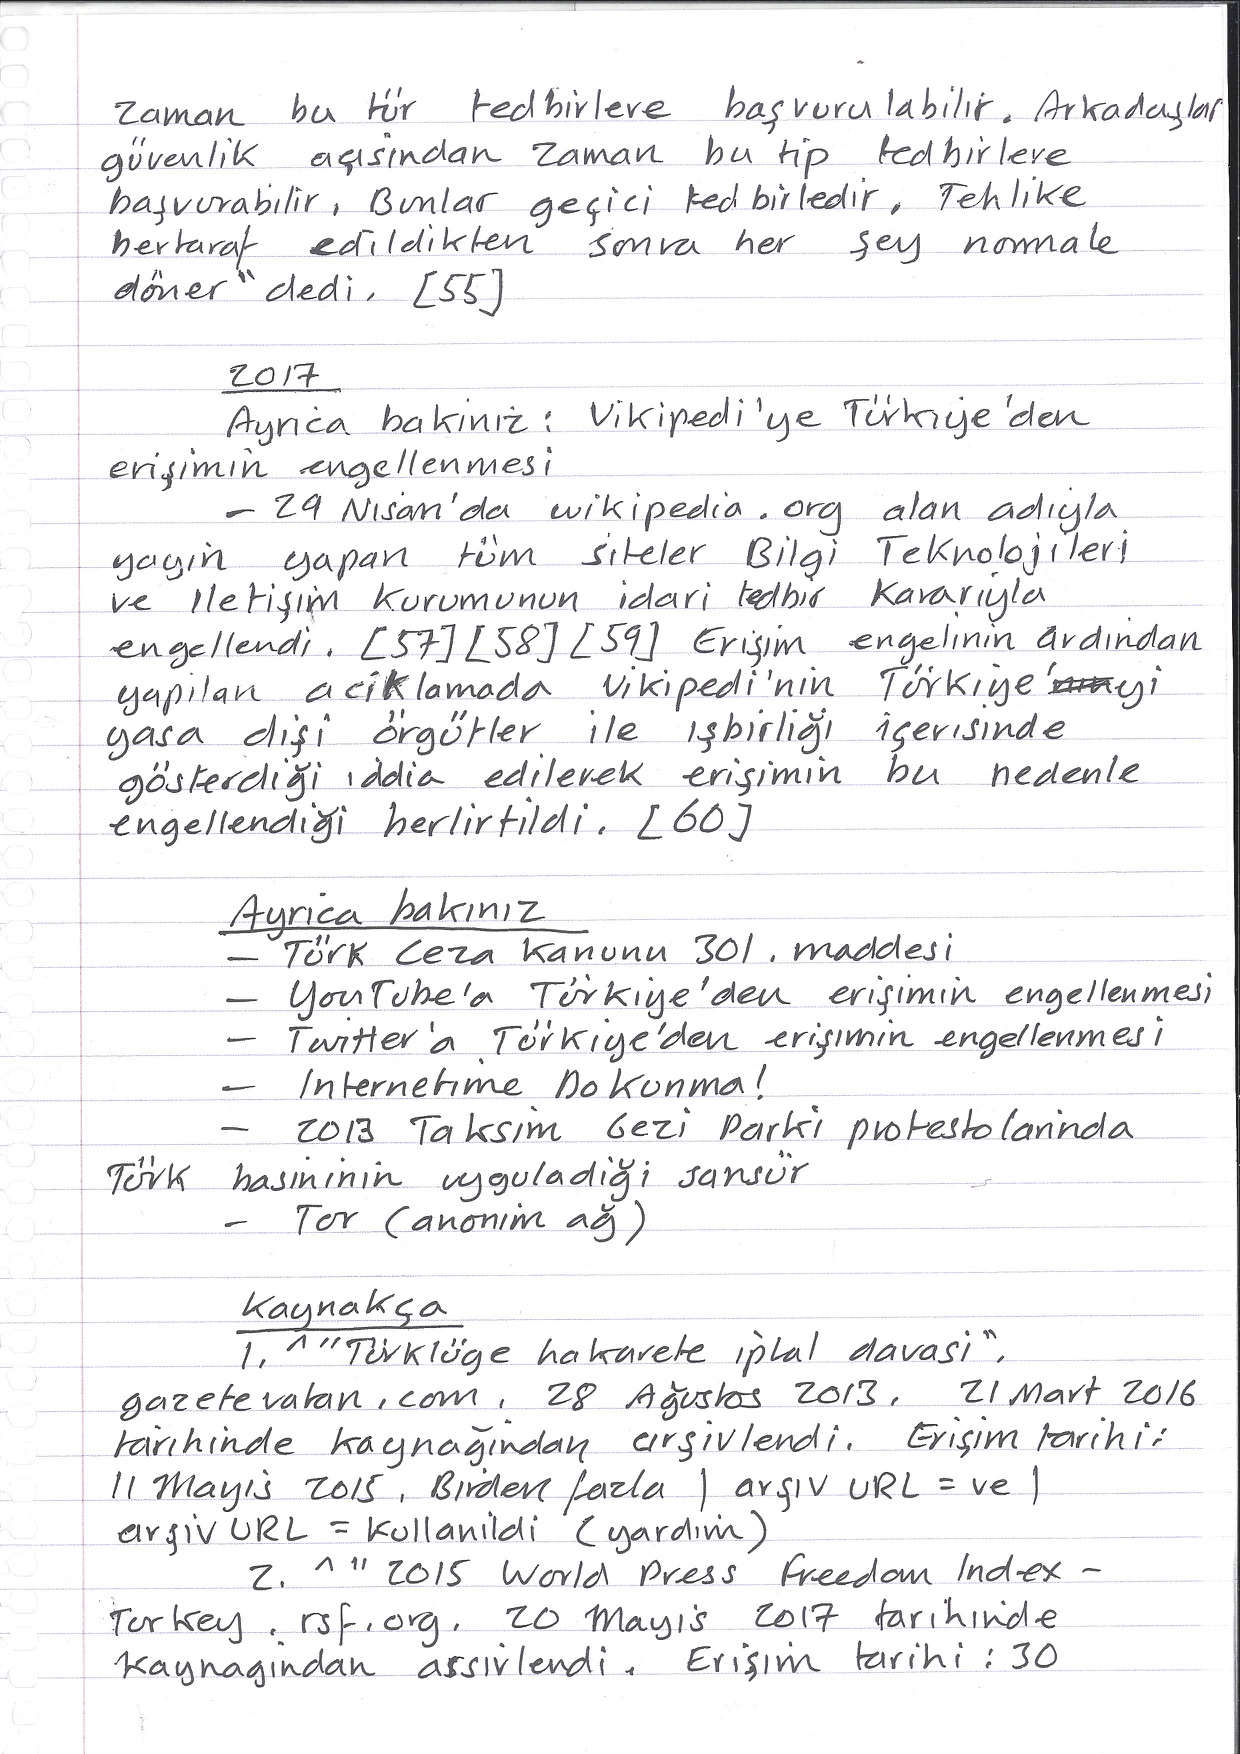 zaman bu tür tedbirlere başvurulabilir. Arkadaşlar
güvenlik açısından zaman bu tip tedbirlere
başvurabilir. Bunlar geçici tedbirledir. Tehlike
bertaraf edildikten sonra her şey normale
döner" dedi. [55]
2017
Ayrıca bakınız: Vikipedi'ye Türkiye'den
erişimin engellenmesi
- 29 Nisan'da wikipedia.org alan adıyla
yayın yapan tüm siteler Bilgi Teknolojileri
ve İletişim Kurumunun idari tedbir kararıyla
engellendi. [57][58][59] Erişim engelinin ardından
yapılan acıklamada Vikipedi'nin Türkiye'yi
yasa dışı örgütler ile işbirliği içerisinde
gösterdiği iddia edilerek erişimin bu nedenle
engellendiği berlirtildi. [60]
Ayrıca bakınız
- Türk Ceza Kanunu 301. maddesi
- YouTube'a Türkiye'den erişimin engellenmesi
- Twitter'a Türkiye'den erişimin engellenmesi
- Internetime Dokunma!
- 2013 Taksim Gezi Parkı protestolarında
Türk basınının uyguladığı sansür
- Tor (anonim ağ)
Kaynakça
1. ^ "Türklüge hakarete iptal davası".
gazetevatan.com. 28 Ağustos 2013. 21 Mart 2016
tarihinde kaynağından arşivlendi. Erişim tarihi:
11 Mayıs 2015. Birden fazla | arşiv URL = ve |
arşiv URL = kullanıldı (yardım)
2. ^ " 2015 World Press Freedom Index -
Turkey. rsf.org. 20 Mayıs 2017 tarihinde
kaynagından arsivlendi. Erişim tarihi: 30